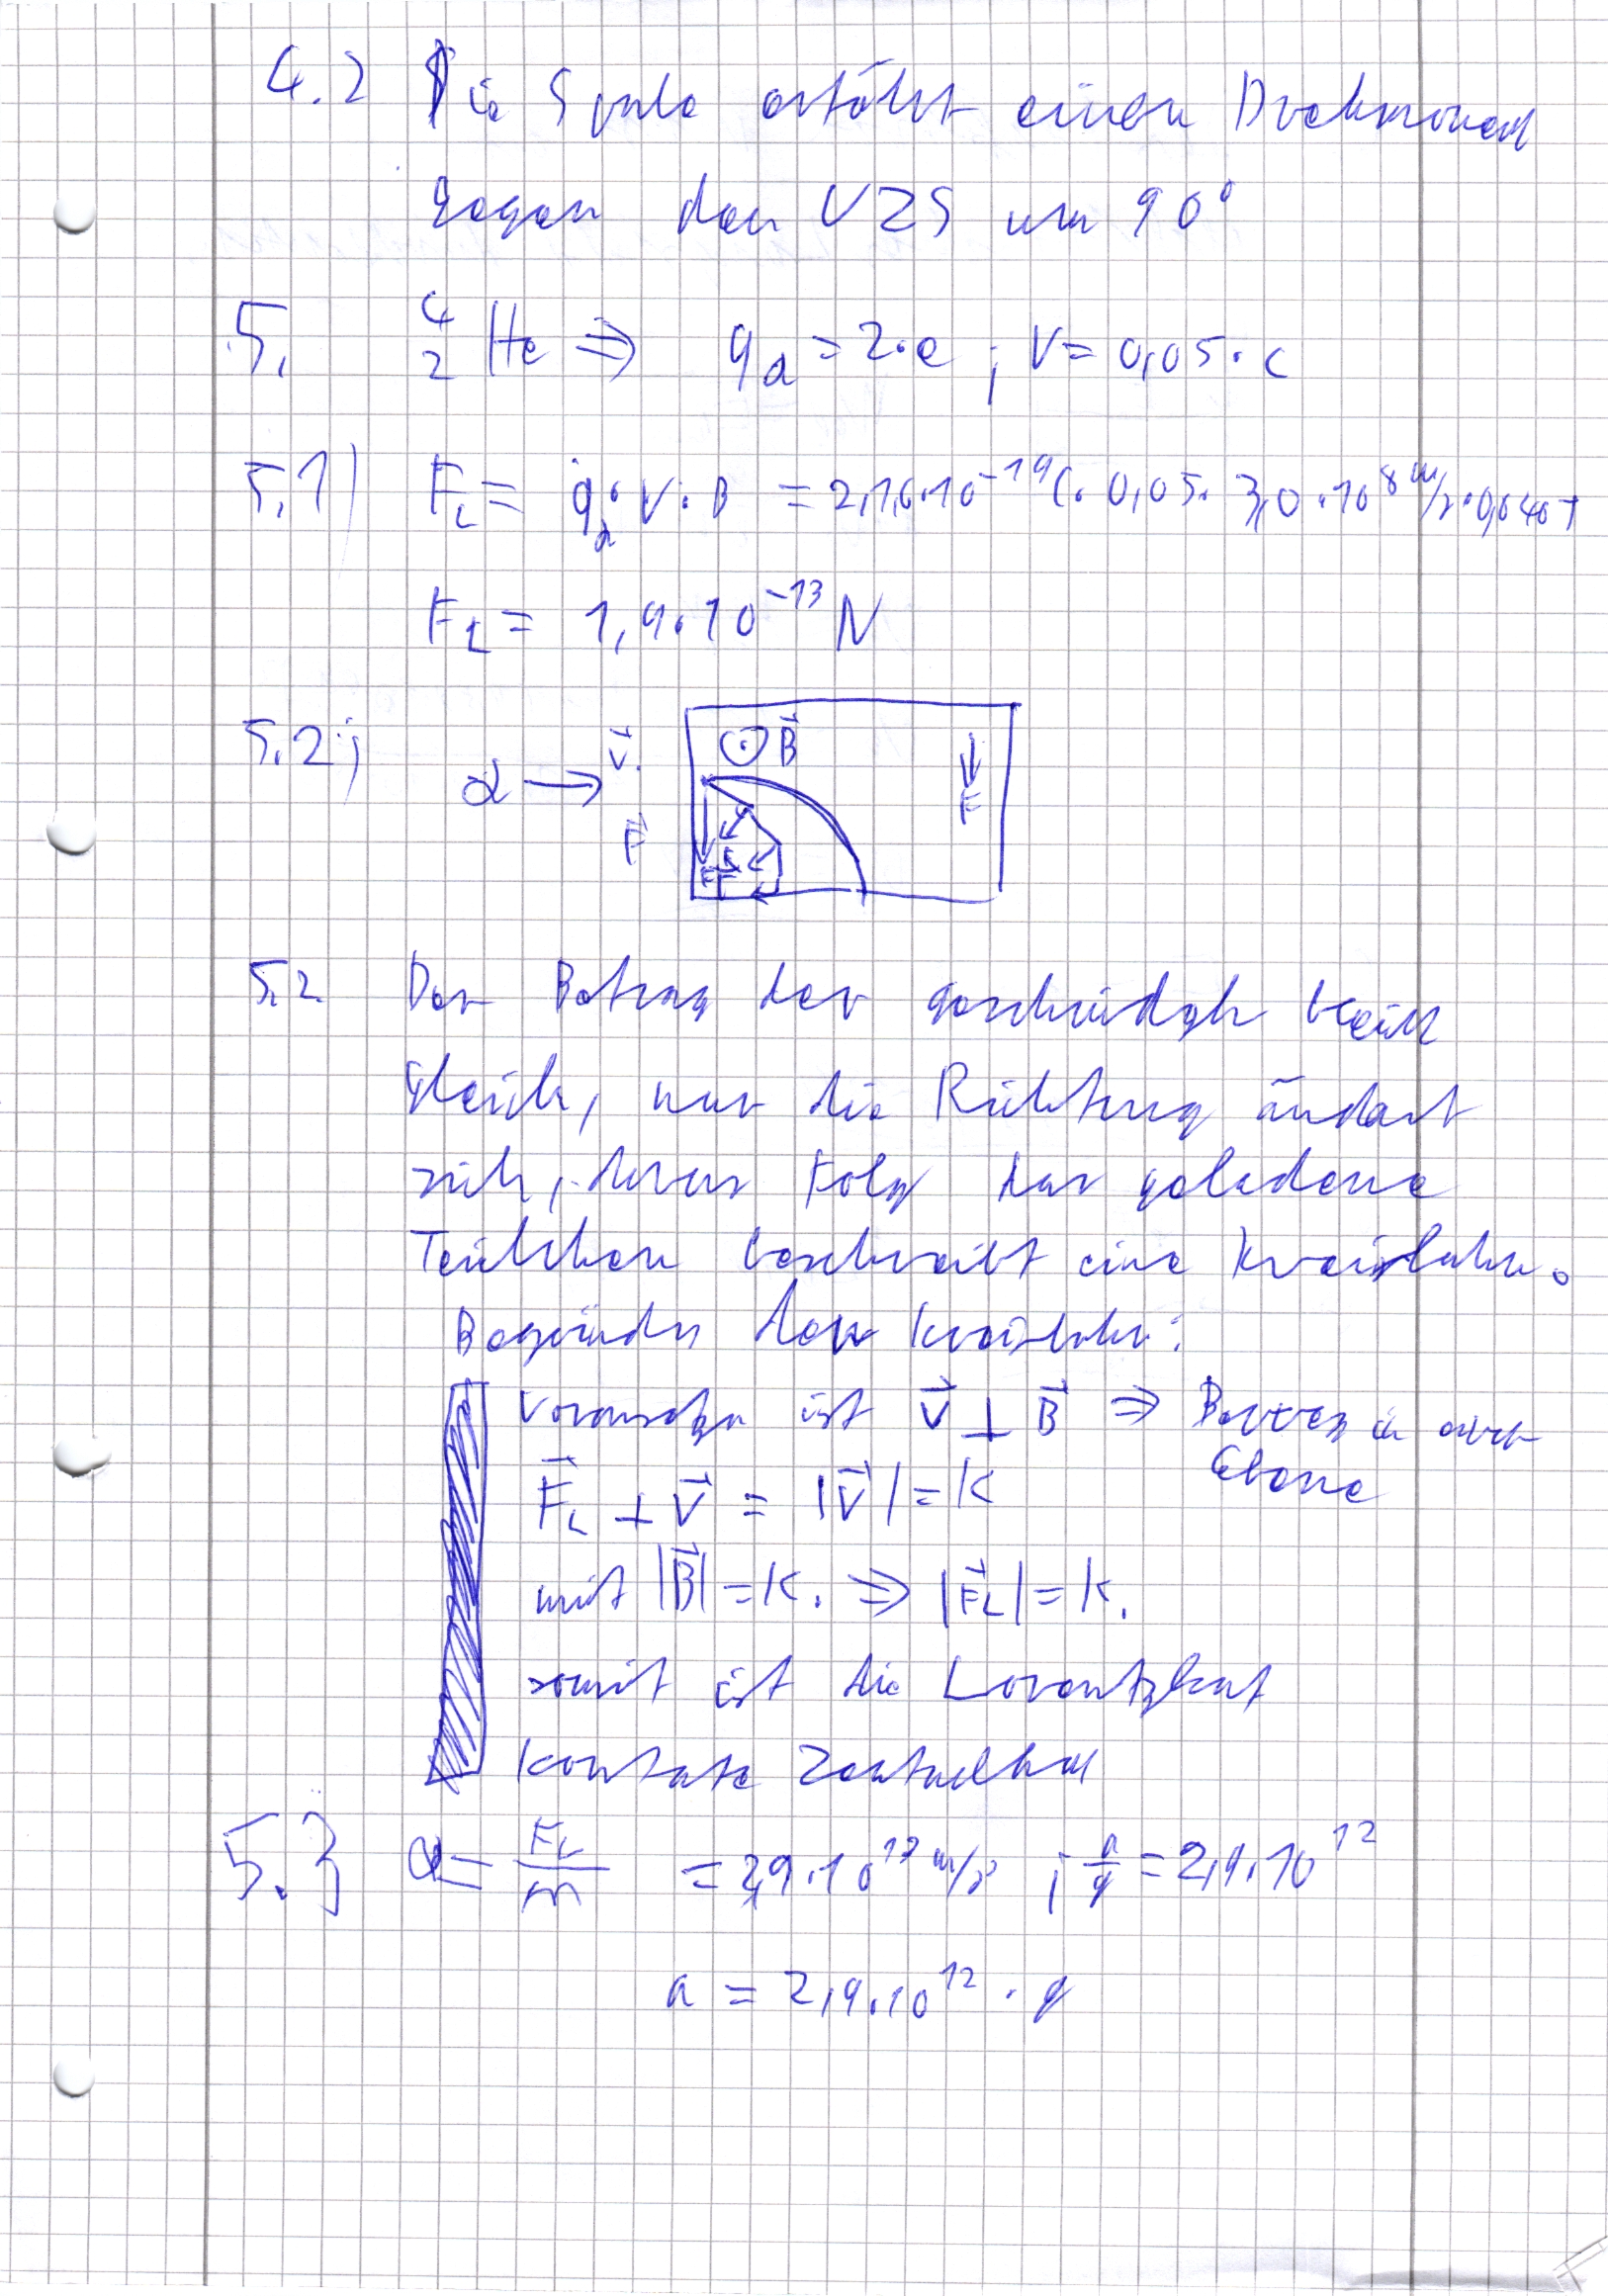 4.2 Die Spule erfährt einen Drehmoment
gegen den UZS um 90°
5. ⁴₂He ⇒ qα = 2·e ; V = 0,05·c
5.1) F_L = qα·V·B = 2·1,6·10⁻¹⁹C·0,05·3,0·10⁸ m/s·0,040T
F_L = 1,9·10⁻¹³ N
5.2; α → v⃗ ⊙ B⃗ F
F⃗ F F
5.2 Der Betrag der geschwindgk bleibt
gleich, nur die Richtung ändert
sich, deren Folg das geladene
Teilchen beschreibt eine Kreisbahn.
Begründu der Kreisbahn:
Voraussetzu ist v⃗ ⊥ B⃗ ⇒ in einer
Ebene
F⃗_L ⊥ v⃗ = |v⃗| = K
mit |B⃗| = K. ⇒ |F⃗_L| = K.
somit ist die Lorentzkraft
konstante Zentralkraft
5.3 a = F_L/m = 2,9·10¹³ m/s² ; a/g = 2,9·10¹²
a = 2,9·10¹²·g